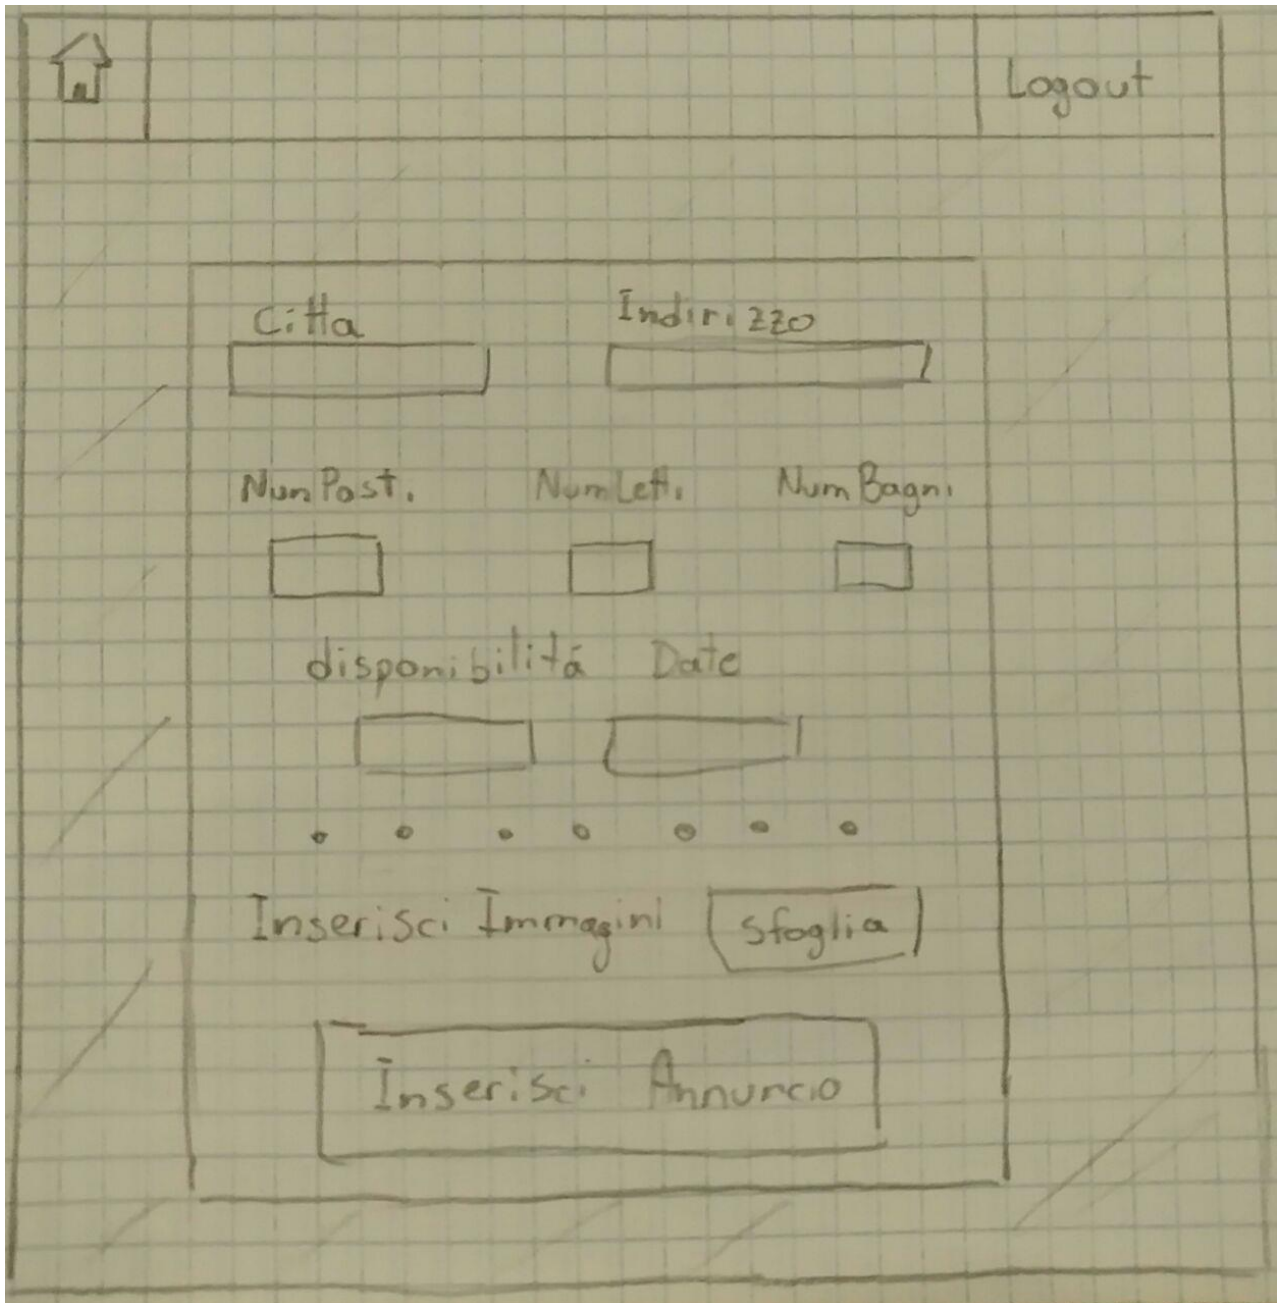 Logout
Citta Indirizzo
NumPosti NumLetti NumBagni
disponibilitá Date
Inserisci Immagini Sfoglia
Inserisci Annuncio